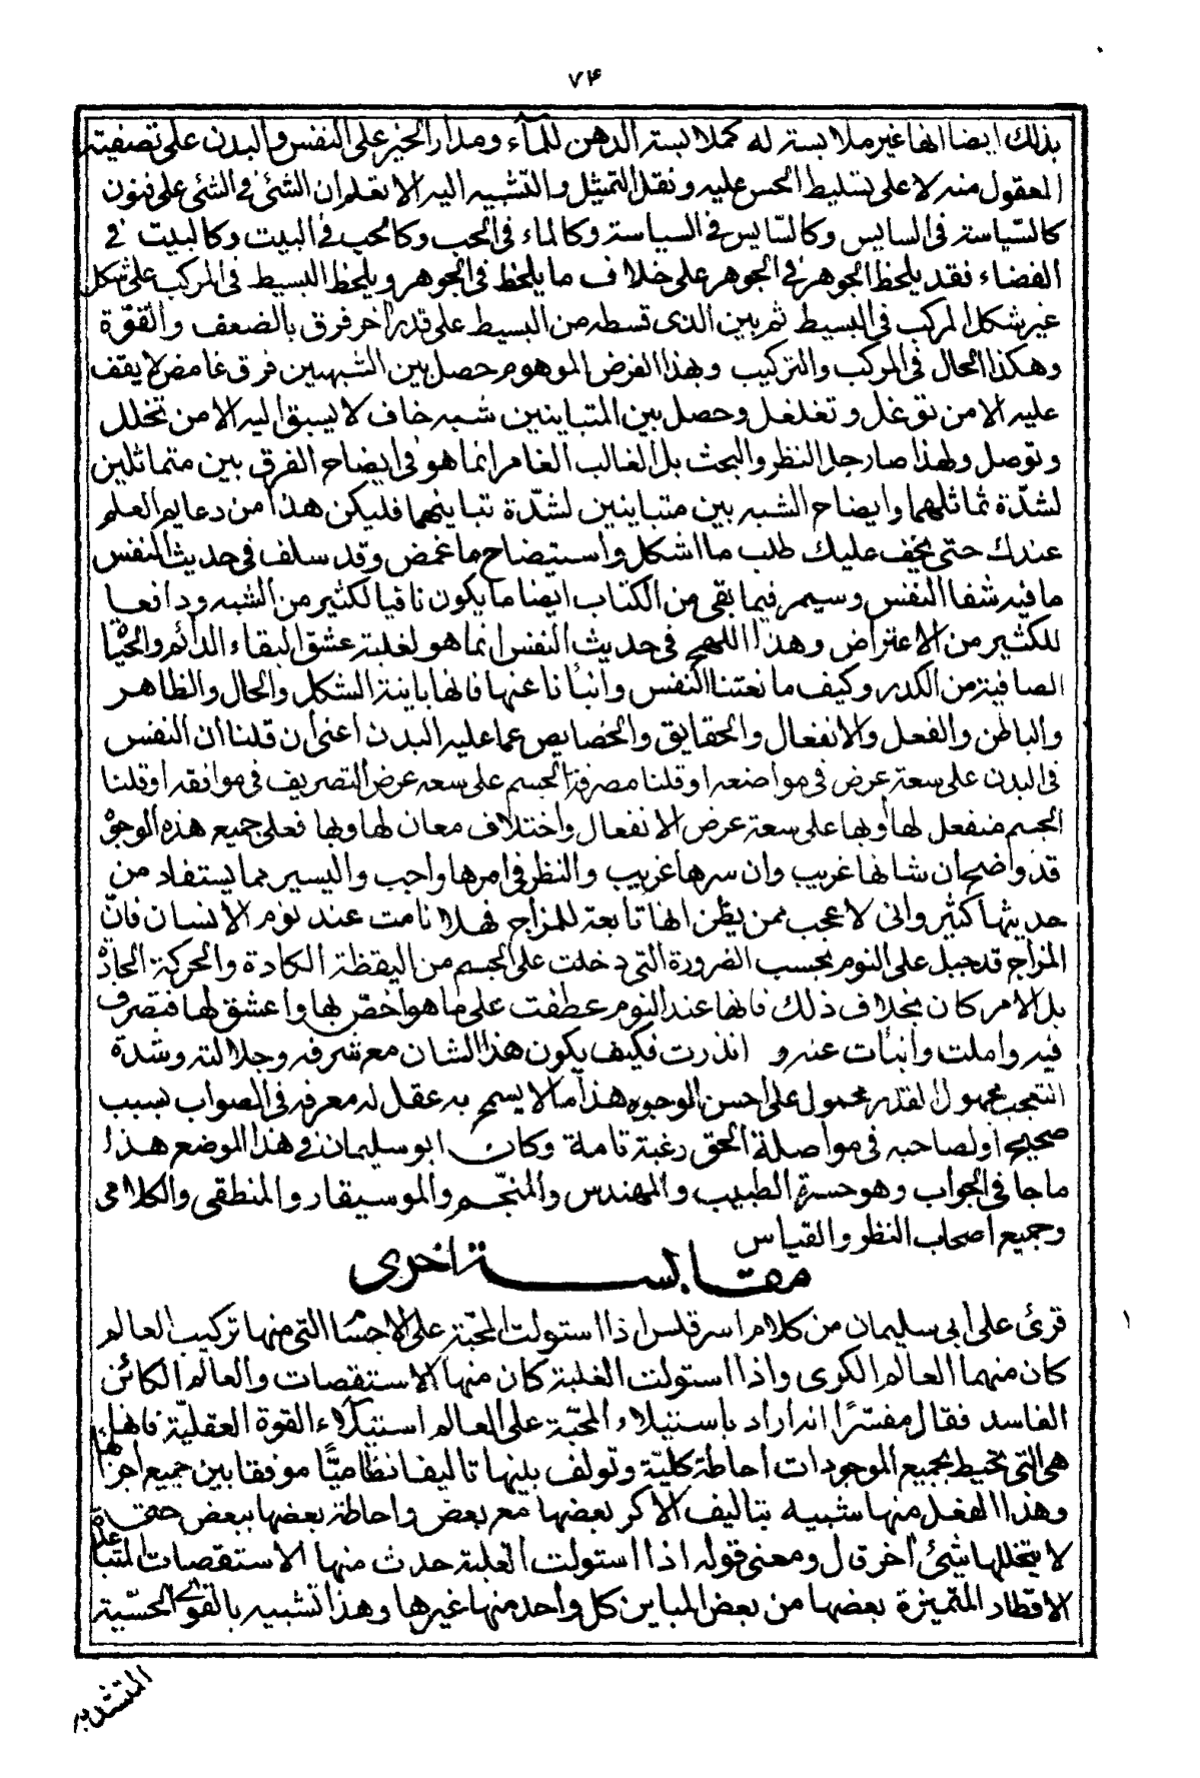 ٧۴
بذلك ايضا انها غير ملابسته له كملابسة الدهن للمآء ومدار الخير على النفس والبدن على تصفية
المعقول منه لا على تسليط الحس عليه ونقل التمثيل والتشبيه اليه الا تعلم ان الشئ في الشئ على فنون
كالسّياسة فى السايس وكالسّايس فى السياسة وكالماء فى الحب وكالحب فى البيت وكالبيت فى
الفضاء فقد يلحظ الجوهر فى الجوهر على خلاف ما يلحظ فى الجوهر ويلحظ البسيط فى المركب على شكل
غير شكل المركب فى البسيط ثم بين الذى قسطه من البسيط على قدر اخر فرق بالضعف والقوّة
وهكذا الحال فى المركب والتركيب وبهذا الفرض الموهوم حصل بين الشبهين فرق غامض لا يقف
عليه الا من توغل وتغلغل وحصل بين المتباينين شبه خاف لا يسبق اليه الا من تخلل
وتوصل ولهذا صار جل النظر والبحث بل الغالب الغامر انما هو فى ايضاح الفرق بين متماثلين
لشدّة تماثلهما وايضاح الشبه بين متباينين لشدّة تباينهما فليكن هذا من دعايم العلم
عندك حتى يخف عليك طلب ما اشكل واستيضاح ما غمض وقد سلف فى حديث النفس
ما فيه شفا النفس وسيمر فيما بقى من الكتاب ايضا ما يكون نافيا لكثير من الشبه ودافعا
للكثير من الاعتراض وهذا اللهج فى حديث النفس انما هو لغلبة عشق البقاء الدائم والحيٰا
الصافية من الكدر وكيف ما نعتنا النفس وانبأنا عنها فانها باينة الشكل والحال والظاهر
والباطن والفعل والانفعال والحقايق والخصايص عما عليه البدن اعنى ان قلنا ان النفس
فى البدن على سعة عرض فى مواضعه او قلنا مصرفة الجسم على سعه عرض التصريف فى موافقه او قلنا
الجسم منفعل لها وبها على سعة عرض الانفعال واختلاف معان لها وبها فعلى جميع هذه الوجوه
قد واضح ان شانها غريب وان سرها غريب والنظر فى امرها واجب واليسير مما يستفاد من
حديثها كثير وانى لاعجب ممن يظن انها تابعة للمزاج فهلا نامت عند نوم الانسان فانّ
المزاج قد جبل على النوم بحسب الضرورة التى دخلت على الجسم من اليقظة الكادة والحركة الحادّة
بل الامر كان بخلاف ذلك فانها عند النوم عطفت على ما هو اخصّ بها واعشق لها فتصرف
فيه واملت وانبأت عنه و انذرت فكيف يكون هذا الشان مع شرفه وجلالته وشدة
التعجب مجهول القدر محمول على احسن الوجوه هذا ما لا يسمح به عقل له معرفة فى الصواب نسبب
صحيح او لصاحبه فى مواصلة الحق رغبة تامة وكان ابو سليمان فى هذا الموضع هذا
ما جا فى الجواب وهو حسرة الطبيب والمهندس والمنجّم والموسيقار والمنطقى والكلامى
وجميع اصحاب النظر والقياس
مقابسة اخرى
قرئ على ابى سليمان من كلام اسرقلس اذا استولت المحبّة على الاجسٰا التى منها تركيب العالم
كان منهما العالم الكرى واذا استولت الغلبة كان منها الاستقصات والعالم الكائن
الفاسد فقال مفسّرًا انه اراد باستيلاء المحبّة على العالم استيلاء القوة العقليّة فانها
هى التى تحيط بجميع الموجودات احاطة كليّة وتولف بينها تاليفا نظاميًّا موفقا بين جميع اجزائها
وهذا الفعل منها شبيه بتاليف الاكر بعضها مع بعض واحاطة بعضها ببعض حتى
لا يتخللها شئ اخر قال ومعنى قوله اذا استولت الغلبة حدث منها الاستقصات المتباعدة
الاقطار المتميزة بعضها من بعض المباين كل واحد منها غيرها وهذا تشبيه بالقوى الحسّية